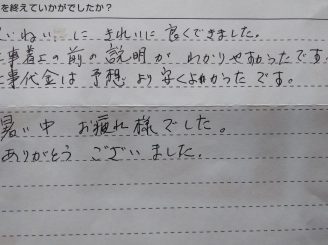 を終えていかがでしたか?
いねいに きれいに 良くできました。
事着工の前の説明が わかりやすかったです
事代金は予想より安くよかったです。
暑い中 お疲れ様でした。
ありがとう ございました。